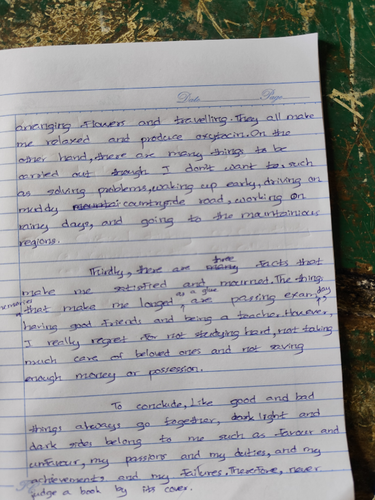 Date Page
arranging flowers and travelling. They all make
me relaxed and produce oxytocin. On the
other hand, there are many things to be
carried out though I don't want to, such
as solving problems, waking up early, driving on
muddy countryside road, working on
rainey days, and going to the mountainious
regions.
Thirdly, there are three facts that
make me satisfied and mourned. The things
memories as a glue day
that make me longed are passing exam,
having good friends and being a teacher. However,
I really regret for not studying hard, not taking
much care of beloved ones and not saving
enough money or possession.
To conclude, Like good and bad
things always go together, light and
dark sides belong to me such as favour and
unfavour, my passions and my duties, and my
achievements and my failures. Therefore, never
judge a book by its cover.